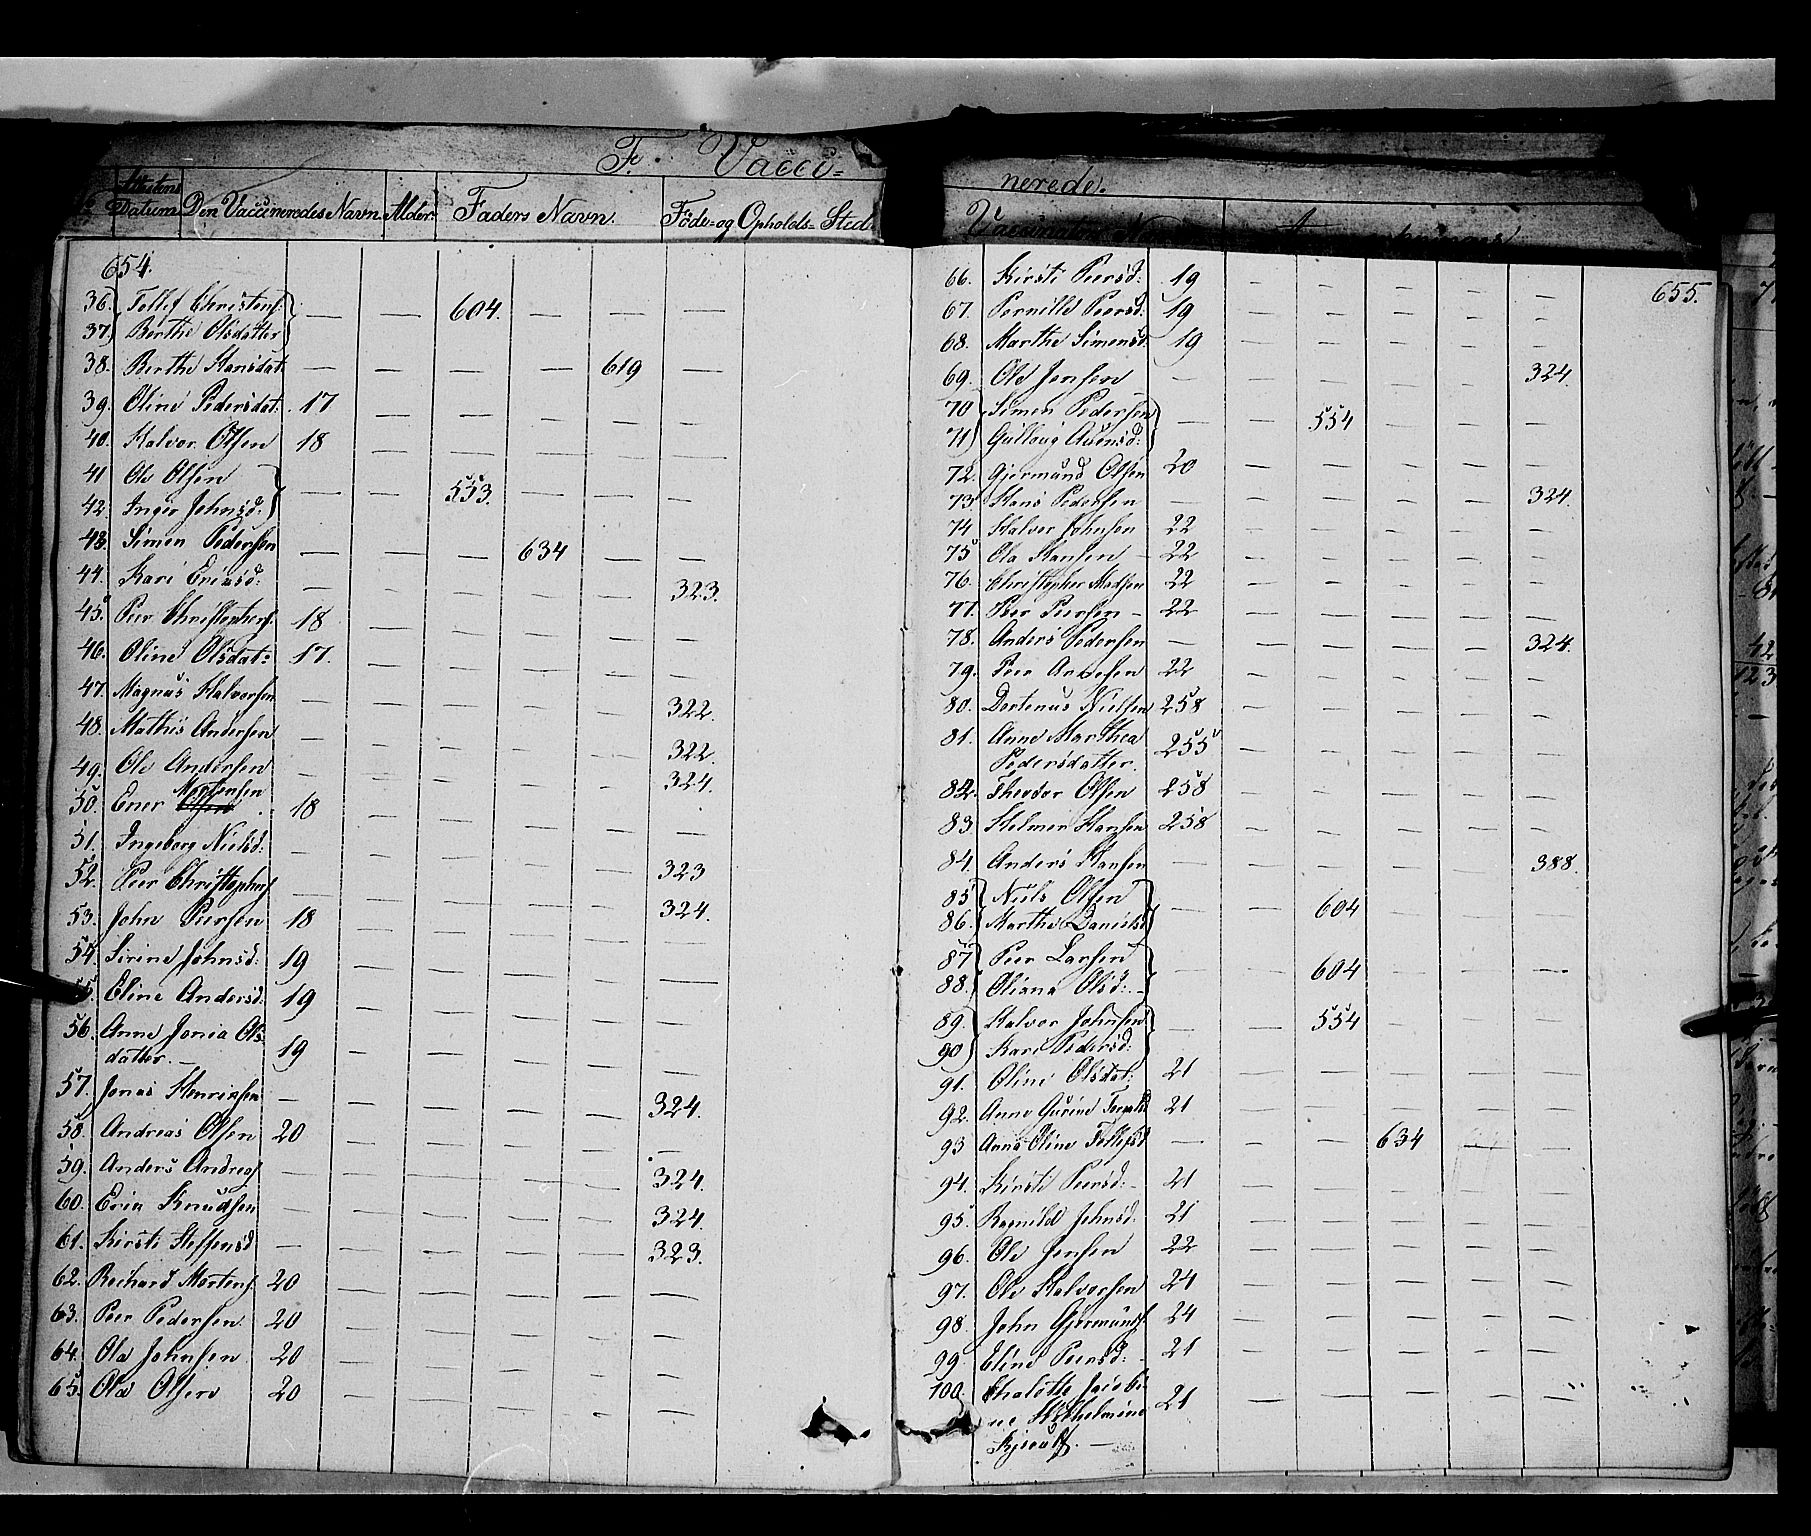 F. Vacci-
nerede.
Attestens Datum Den Vaccineredes Navn. Alder. Faders Navn. Föde- og Opholds-Sted
Vaccinateurs Anmærkninger
654.
36. Tollef Christens. — — 604. — — —
37. Berthe Olsdatter
38. Berthe Hansdat. — — — — 619 —
39. Oline Pedersdat. 17 — — — — —
40. Halvor Olsen 18 — — — — —
41 Ole Olsen — — 553. — — —
42. Inger Johnsd.
43. Simen Pedersen — — — 634 — —
44. Kari Ericsd: — — — — — 323.
45. Peer Christophers. 18 — — — — —
46. Oline Olsdat: 17. — — — — —
47. Magnus Halvorsen — — — — — 322.
48. Mathis Andersen — — — — — 322.
49. Ole Andersen — — — — — 324.
Mortensen
50. Ener Olsen 18 — — — — —
51. Ingeborg Nielsd: — — — — — 323
52. Peer Christophers. — — — — — 324.
53. John Peersen 18 — — — — —
54. Sirine Johnsd: 19 — — — — —
55. Eline Andersd. 19 — — — — —
56. Anne Jonia Ols
datter. — 19 — — — — —
57. Jonas Henriksen — — — — — 324.
58. Andreas Olsen 20 — — — — —
59. Anders Andreas. — — — — — 324.
60. Eric Knudsen — — — — — 324.
61. Kirsti Steffensd — — — — — 323.
62. Rechard Mortens. 20 — — — — —
63. Peer Pedersen. 20 — — — — —
64. Ola Johnsen. 20 — — — — —
65. Ola Olsen 20 — — — — —
655.
66. Kirsti Peersd: 19 — — — — —
67. Pernille Peersd: 19 — — — — —
68. Marthe Simensd. 19 — — — — —
69. Ole Jensen — — — — — 324.
70 Simen Pedersen — — 554 — — —
71 Gulloug Auensd:
72. Gjermund Olsen 20 — — — — —
73 Hans Pedersen — — — — — 324.
74 Halvor Johnsen 22 — — — — —
75 Ola Hansen — 22 — — — — —
76. Christopher Madsen 22 — — — — —
77. Peer Peersen — 22 — — — — —
78. Anders Pedersen — — — — — 324.
79. Peer Arnesen 22 — — — — —
80. Dortenus Nielsen 258 — — — — —
81. Anne Marthea
Pedersdatter. 255 — — — — —
82. Theodor Olsen 258 — — — — —
83. Helmer Hansen 258 — — — — —
84. Anders Hansen — — — — — 388.
85 Niels Olsen — — 604 — — —
86. Marthe Danielsd
87 Peer Larsen — — 604 — — —
88. Oliana Olsd:
89. Halvor Johnsen — — 554 — — —
90 Kari Pedersd:
91. Oline Olsdat: 21 — — — — —
92. Anne Gurine 21 — — — — —
93 Anne Oline Tollefsd — — — 634 — —
94. Kirsti Peersd: 21 — — — — —
95. Ragnild Johnsd. 21 — — — — —
96. Ole Jensen 22 — — — — —
97. Ole Halvorsen 24 — — — — —
98. John Gjermunds. 24 — — — — —
99. Eline Peersd: 21 — — — — —
100. Chalotte Jacobi
ne Wilhelmine 21 — — — — —
Kjerulf. —